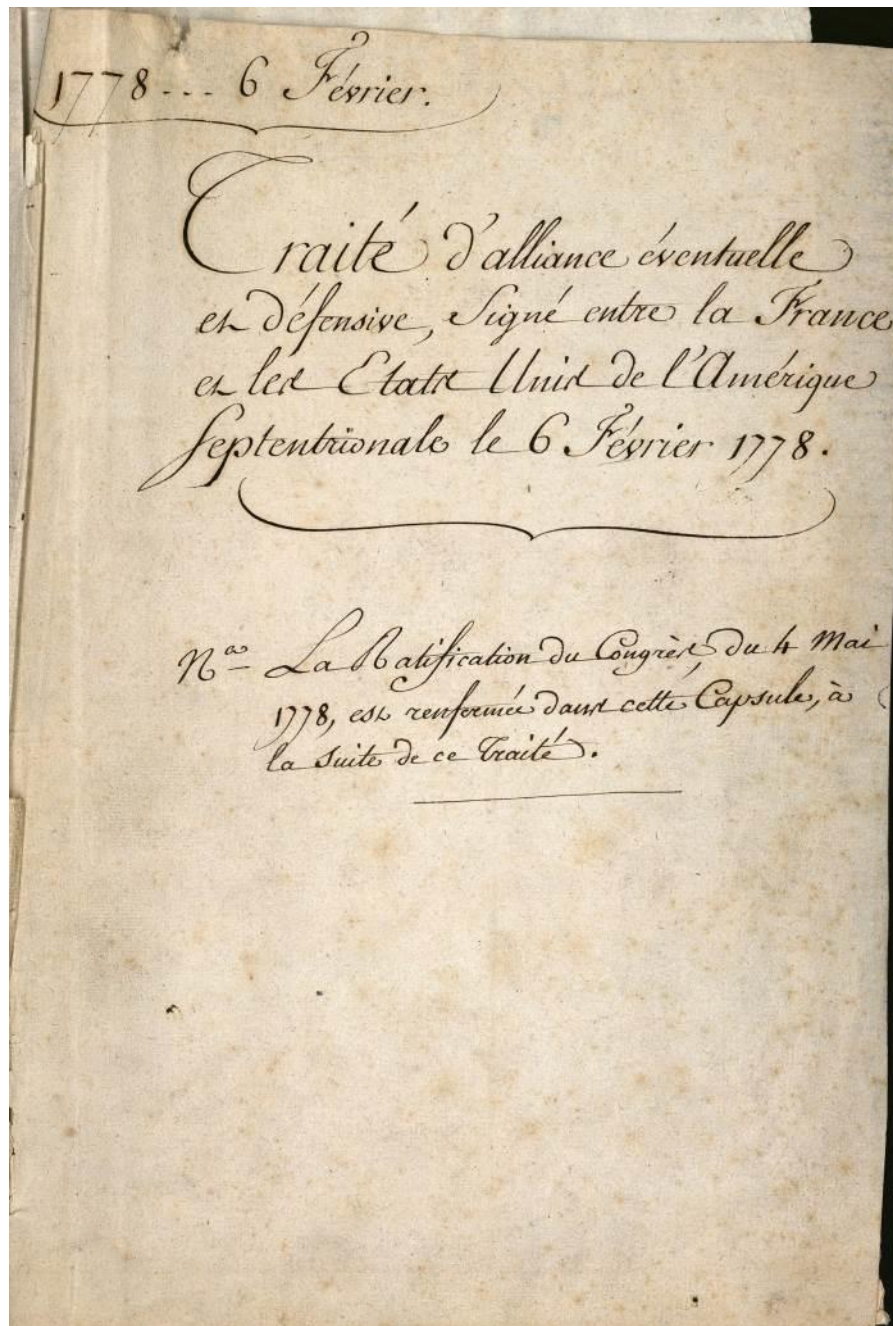 1778... 6 Février.
Traité d'alliance éventuelle
et défensive, Signé entre la France
et les Etats Unis de l'Amérique
Septentrionale le 6 Février 1778.
Nᵃ La Ratification du Congrès, du 4 Mai
1778, est renfermée dans cette Capsule, à
la suite de ce Traité.